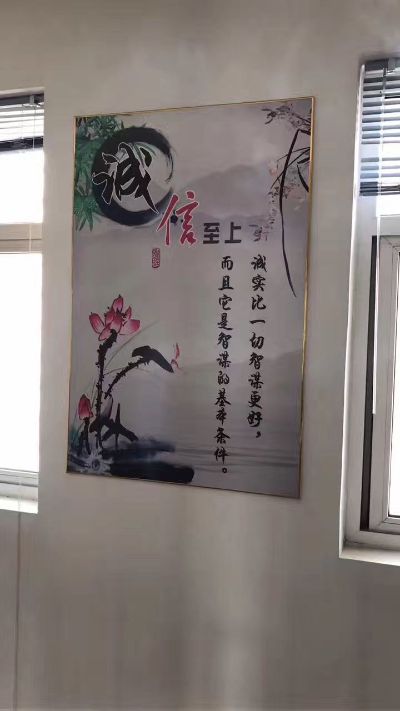 诚信至上
诚实比一切智谋更好，
而且它是智谋的基本条件。